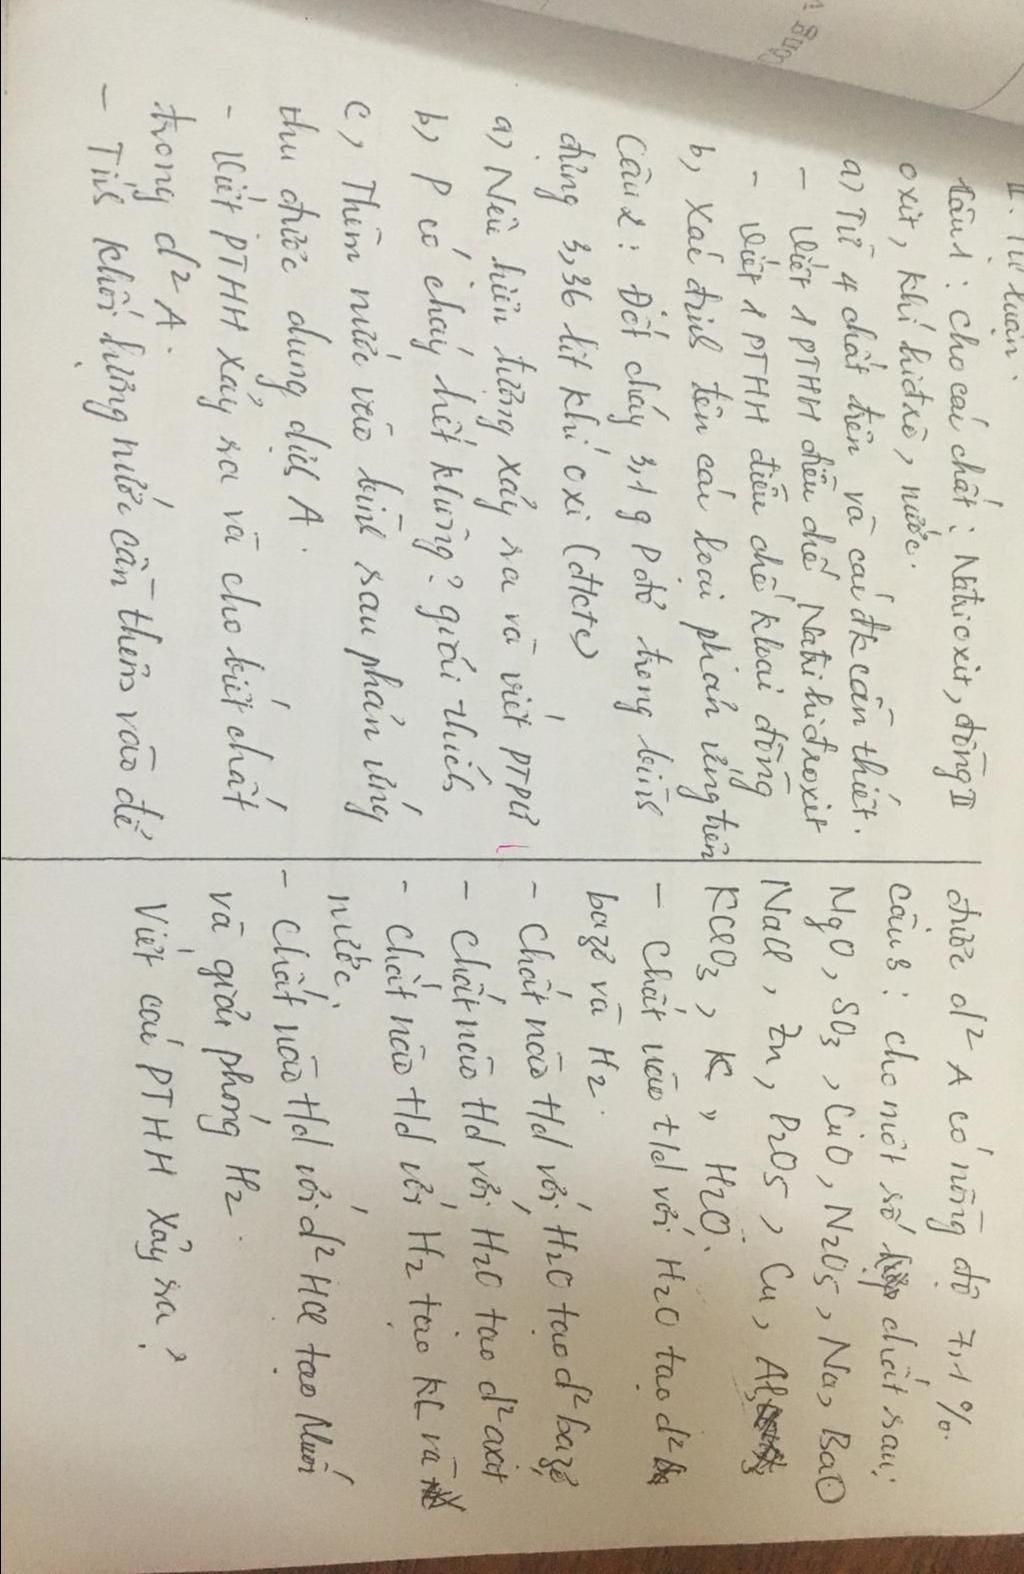 II. Tự luận.
Câu 1: Cho các chất: Natrioxit, đồng II
oxit, khí hiđrô, nước.
a, Từ 4 chất trên và các đk cần thiết.
- Viết 1 PTHH điều chế Natrihiđroxit
- Viết 1 PTHH điều chế kloại đồng
b, Xác định tên các loại phản ứng trên
Câu 2: Đốt cháy 3,1 g P đỏ trong bình
đựng 3,36 lít khí oxi (đktc)
a, Nêu hiện tượng xảy ra và viết PTPƯ
b, P có cháy hết không? giải thích
c, Thêm nước vào bình sau phản ứng
thu được dung dịch A.
- Viết PTHH xảy ra và cho biết chất
trong d² A.
- Tính khối lượng nước cần thêm vào để
được d² A có nồng độ 7,1 %.
Câu 3: cho một số chất sau:
MgO, SO3, CuO, N2O5, Na, BaO
NaCl, Zn, P2O5, Cu, Al,
KClO3, K, H2O.
- Chất nào t/d với H2O tạo d²
bazơ và H2.
- Chất nào t/d với H2O tạo d² bazơ
- Chất nào t/d với H2O tạo d² axit
- Chất nào t/d với H2 tạo KL và
nước.
- Chất nào t/d với d² HCl tạo Muối
và giải phóng H2.
Viết các PTHH xảy ra?